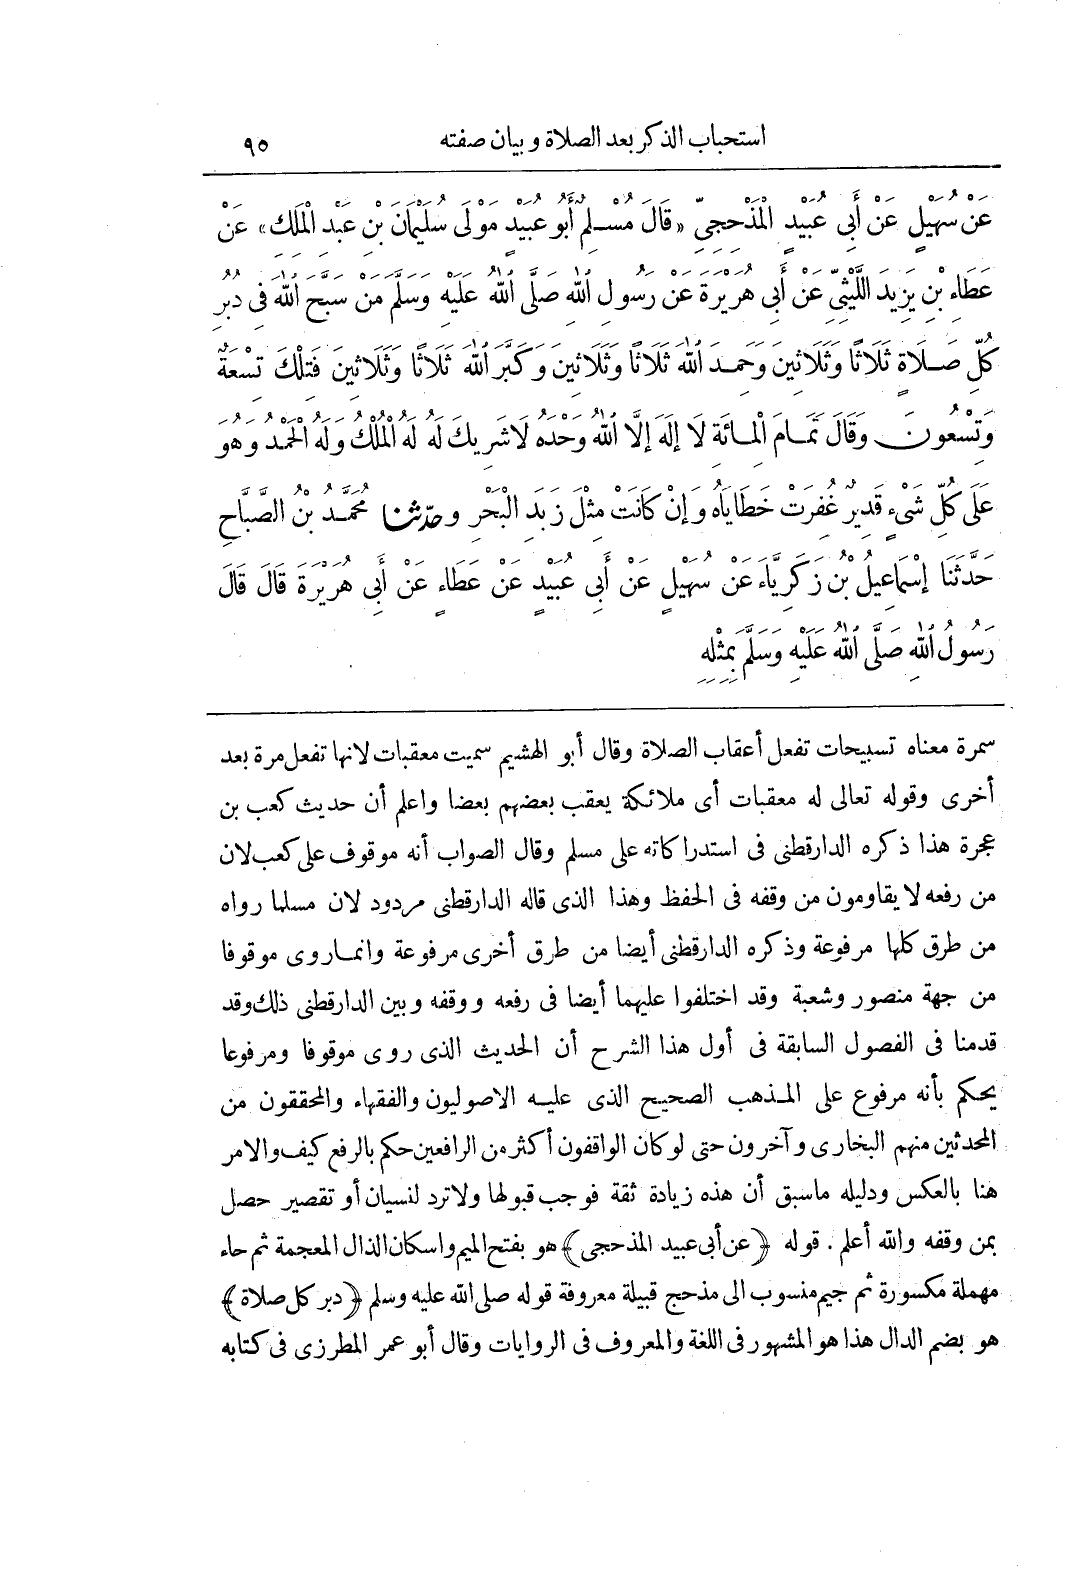 استحباب الذكر بعد الصلاة وبيان صفته ٩٥
عَنْ سُهَيْلٍ عَنْ أَبِي عُبَيْدٍ الْمَذْحِجِيِّ «قَالَ مُسْلِمٌ أَبُو عُبَيْدٍ مَوْلَى سُلَيْمَانَ بْنِ عَبْدِ الْمَلِكِ» عَنْ
عَطَاءِ بْنِ يَزِيدَ اللَّيْثِيِّ عَنْ أَبِي هُرَيْرَةَ عَنْ رَسُولِ اللهِ صَلَّى اللهُ عَلَيْهِ وَسَلَّمَ مَنْ سَبَّحَ اللهَ فِى دُبُرِ
كُلِّ صَلَاةٍ ثَلَاثًا وَثَلَاثِينَ وَحَمِدَ اللهَ ثَلَاثًا وَثَلَاثِينَ وَكَبَّرَ اللهَ ثَلَاثًا وَثَلَاثِينَ فَتِلْكَ تِسْعَةٌ
وَتِسْعُونَ وَقَالَ تَمَامَ الْمِائَةِ لَا إِلَهَ إِلَّا اللهُ وَحْدَهُ لَا شَرِيكَ لَهُ لَهُ الْمُلْكُ وَلَهُ الْحَمْدُ وَهُوَ
عَلَى كُلِّ شَىْءٍ قَدِيرٌ غُفِرَتْ خَطَايَاهُ وَإِنْ كَانَتْ مِثْلَ زَبَدِ الْبَحْرِ وحدثنا مُحَمَّدُ بْنُ الصَّبَّاحِ
حَدَّثَنَا إِسْمَاعِيلُ بْنُ زَكَرِيَّاءَ عَنْ سُهَيْلٍ عَنْ أَبِى عُبَيْدٍ عَنْ عَطَاءٍ عَنْ أَبِى هُرَيْرَةَ قَالَ قَالَ
رَسُولُ اللهِ صَلَّى اللهُ عَلَيْهِ وَسَلَّمَ بِمِثْلِهِ
سمرة معناه تسبيحات تفعل أعقاب الصلاة وقال أبو الهشيم سميت معقبات لانها تفعل مرة بعد
أخرى وقوله تعالى له معقبات أى ملائكة يعقب بعضهم بعضا واعلم أن حديث كعب بن
عجرة هذا ذكره الدارقطنى فى استدراكاته على مسلم وقال الصواب أنه موقوف على كعب لان
من رفعه لا يقاومون من وقفه فى الحفظ وهذا الذى قاله الدارقطنى مردود لان مسلما رواه
من طرق كلها مرفوعة وذكره الدارقطنى أيضا من طرق أخرى مرفوعة وانما روى موقوفا
من جهة منصور وشعبة وقد اختلفوا عليهما أيضا فى رفعه ووقفه وبين الدارقطنى ذلك وقد
قدمنا فى الفصول السابقة فى أول هذا الشرح أن الحديث الذى روى موقوفا ومرفوعا
يحكم بأنه مرفوع على المذهب الصحيح الذى عليه الاصوليون والفقهاء والمحققون من
المحدثين منهم البخارى وآخرون حتى لو كان الواقفون أكثر من الرافعين حكم بالرفع كيف والامر
هنا بالعكس ودليله ماسبق أن هذه زيادة ثقة فوجب قبولها ولا ترد لنسيان أو تقصير حصل
بمن وقفه والله أعلم. قوله ﴿عن أبى عبيد المذحجى﴾ هو بفتح الميم واسكان الذال المعجمة ثم حاء
مهملة مكسورة ثم جيم منسوب الى مذحج قبيلة معروفة قوله صلى الله عليه وسلم ﴿دبر كل صلاة﴾
هو بضم الدال هذا هو المشهور فى اللغة والمعروف فى الروايات وقال أبو عمر المطرزى فى كتابه